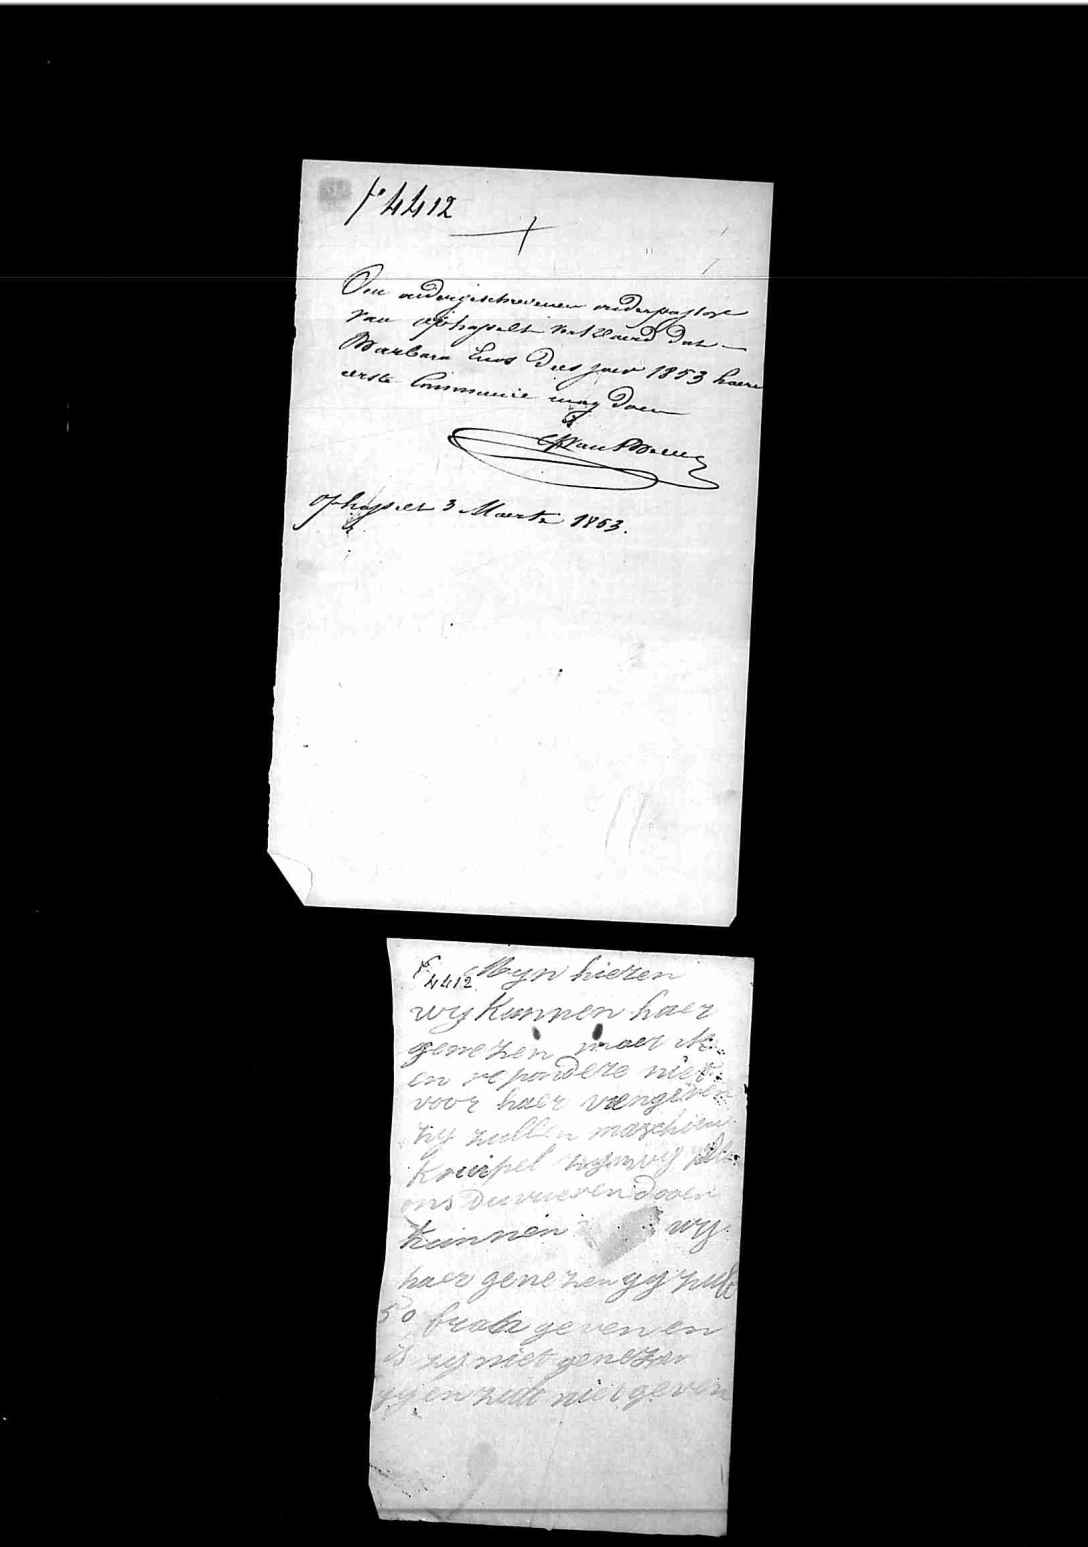 f° 4412
Den ondergeschrevenen onderpastor
van ophasselt verklaerd dat
Barbara Luos dees jaer 1853 haere
eerste Communie mag doen
ophasselt 3 Maerte 1853.
f° 4412. Myn hieren
wy kunnen haer
genezen maer ik
en repondere niet
voor haer
zy zullen maschien
kruipel zyn wy
ons dooen
kunnen wy
haer genezen gy zult
50 frank geven en
is zy niet genezen
gy en zult niet geven